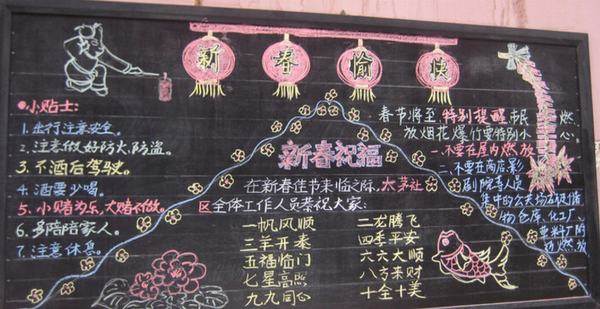 新春愉快
小贴士:
1. 出行注意安全。
2. 注意做好防火、防盗。
3. 不酒后驾驶。
4. 酒要少喝。
5. 小赌为乐,大赌不做。
6. 多陪陪家人。
7. 注意休息。
新春祝福
在新春佳节来临之际,太茅社
区全体工作人员恭祝大家:
一帆风顺 二龙腾飞
三羊开泰 四季平安
五福临门 六六大顺
七星高照 八方来财
九九同心 十全十美
春节将至 特别提醒市民 燃
放烟花爆竹要特别小心。
一、不要在屋内燃放
二、不要在商店、影
剧院等人员
集中的公共场所及储
物仓库、化工厂、
塑料厂附
近燃放